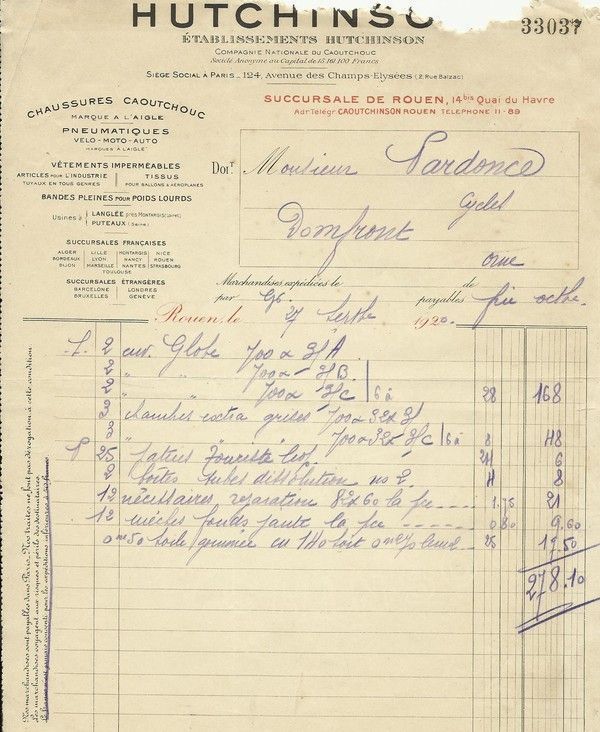 HUTCHINSO
33037
ÉTABLISSEMENTS HUTCHINSON
COMPAGNIE NATIONALE DU CAOUTCHOUC
Société Anonyme au Capital de 15.161.100 Francs
SIÈGE SOCIAL À PARIS _ 124, Avenue des Champs-Elysées (2, Rue Balzac)
CHAUSSURES CAOUTCHOUC
MARQUE A L'AIGLE
PNEUMATIQUES
VELO-MOTO-AUTO
MARQUES A L'AIGLE
SUCCURSALE DE ROUEN, 14bis Quai du Havre
Adr Télégr. CAOUTCHINSON ROUEN TELEPHONE 11-89
VÊTEMENTS IMPERMÉABLES
ARTICLES POUR L'INDUSTRIE
TUYAUX EN TOUS GENRES
TISSUS
POUR BALLONS & AÉROPLANES
BANDES PLEINES POUR POIDS LOURDS
Usines à LANGLÉE près MONTARGIS (Loiret)
PUTEAUX (Seine)
SUCCURSALES FRANÇAISES
ALGER LILLE MONTARGIS NICE
BORDEAUX LYON NANCY ROUEN
DIJON MARSEILLE NANTES STRASBOURG
TOULOUSE
SUCCURSALES ÉTRANGÈRES
BARCELONE LONDRES
BRUXELLES GENÈVE
DOIT Monsieur Pardonce
Cycles
Domfront
Orne
Marchandises expédiées le de
par payables fin octbre
Rouen, le 27 Septbre 1920
2 env. Globe 700 x 3/A
2 " " 700 x 3/B
2 " " 700 x 3/C 6 à 28 168
3 chambres extra grises 700 x
3 " " 700 x 325 3/C 6 à 8 48
P 25 patins Touriste 24 6
2 boîtes tubes dissolution no 2 4 8
12 nécessaires reparation 82x60 la pce 1.75 21
12 mèches fonds jante la pce 0 80 9,60
0m50 toile gommée en 140 soit 25 17.50
278.10
Nos marchandises sont payables dans Paris. Nos traites ne font pas dérogation à cette condition
Les marchandises voyagent aux risques et périls des destinataires.